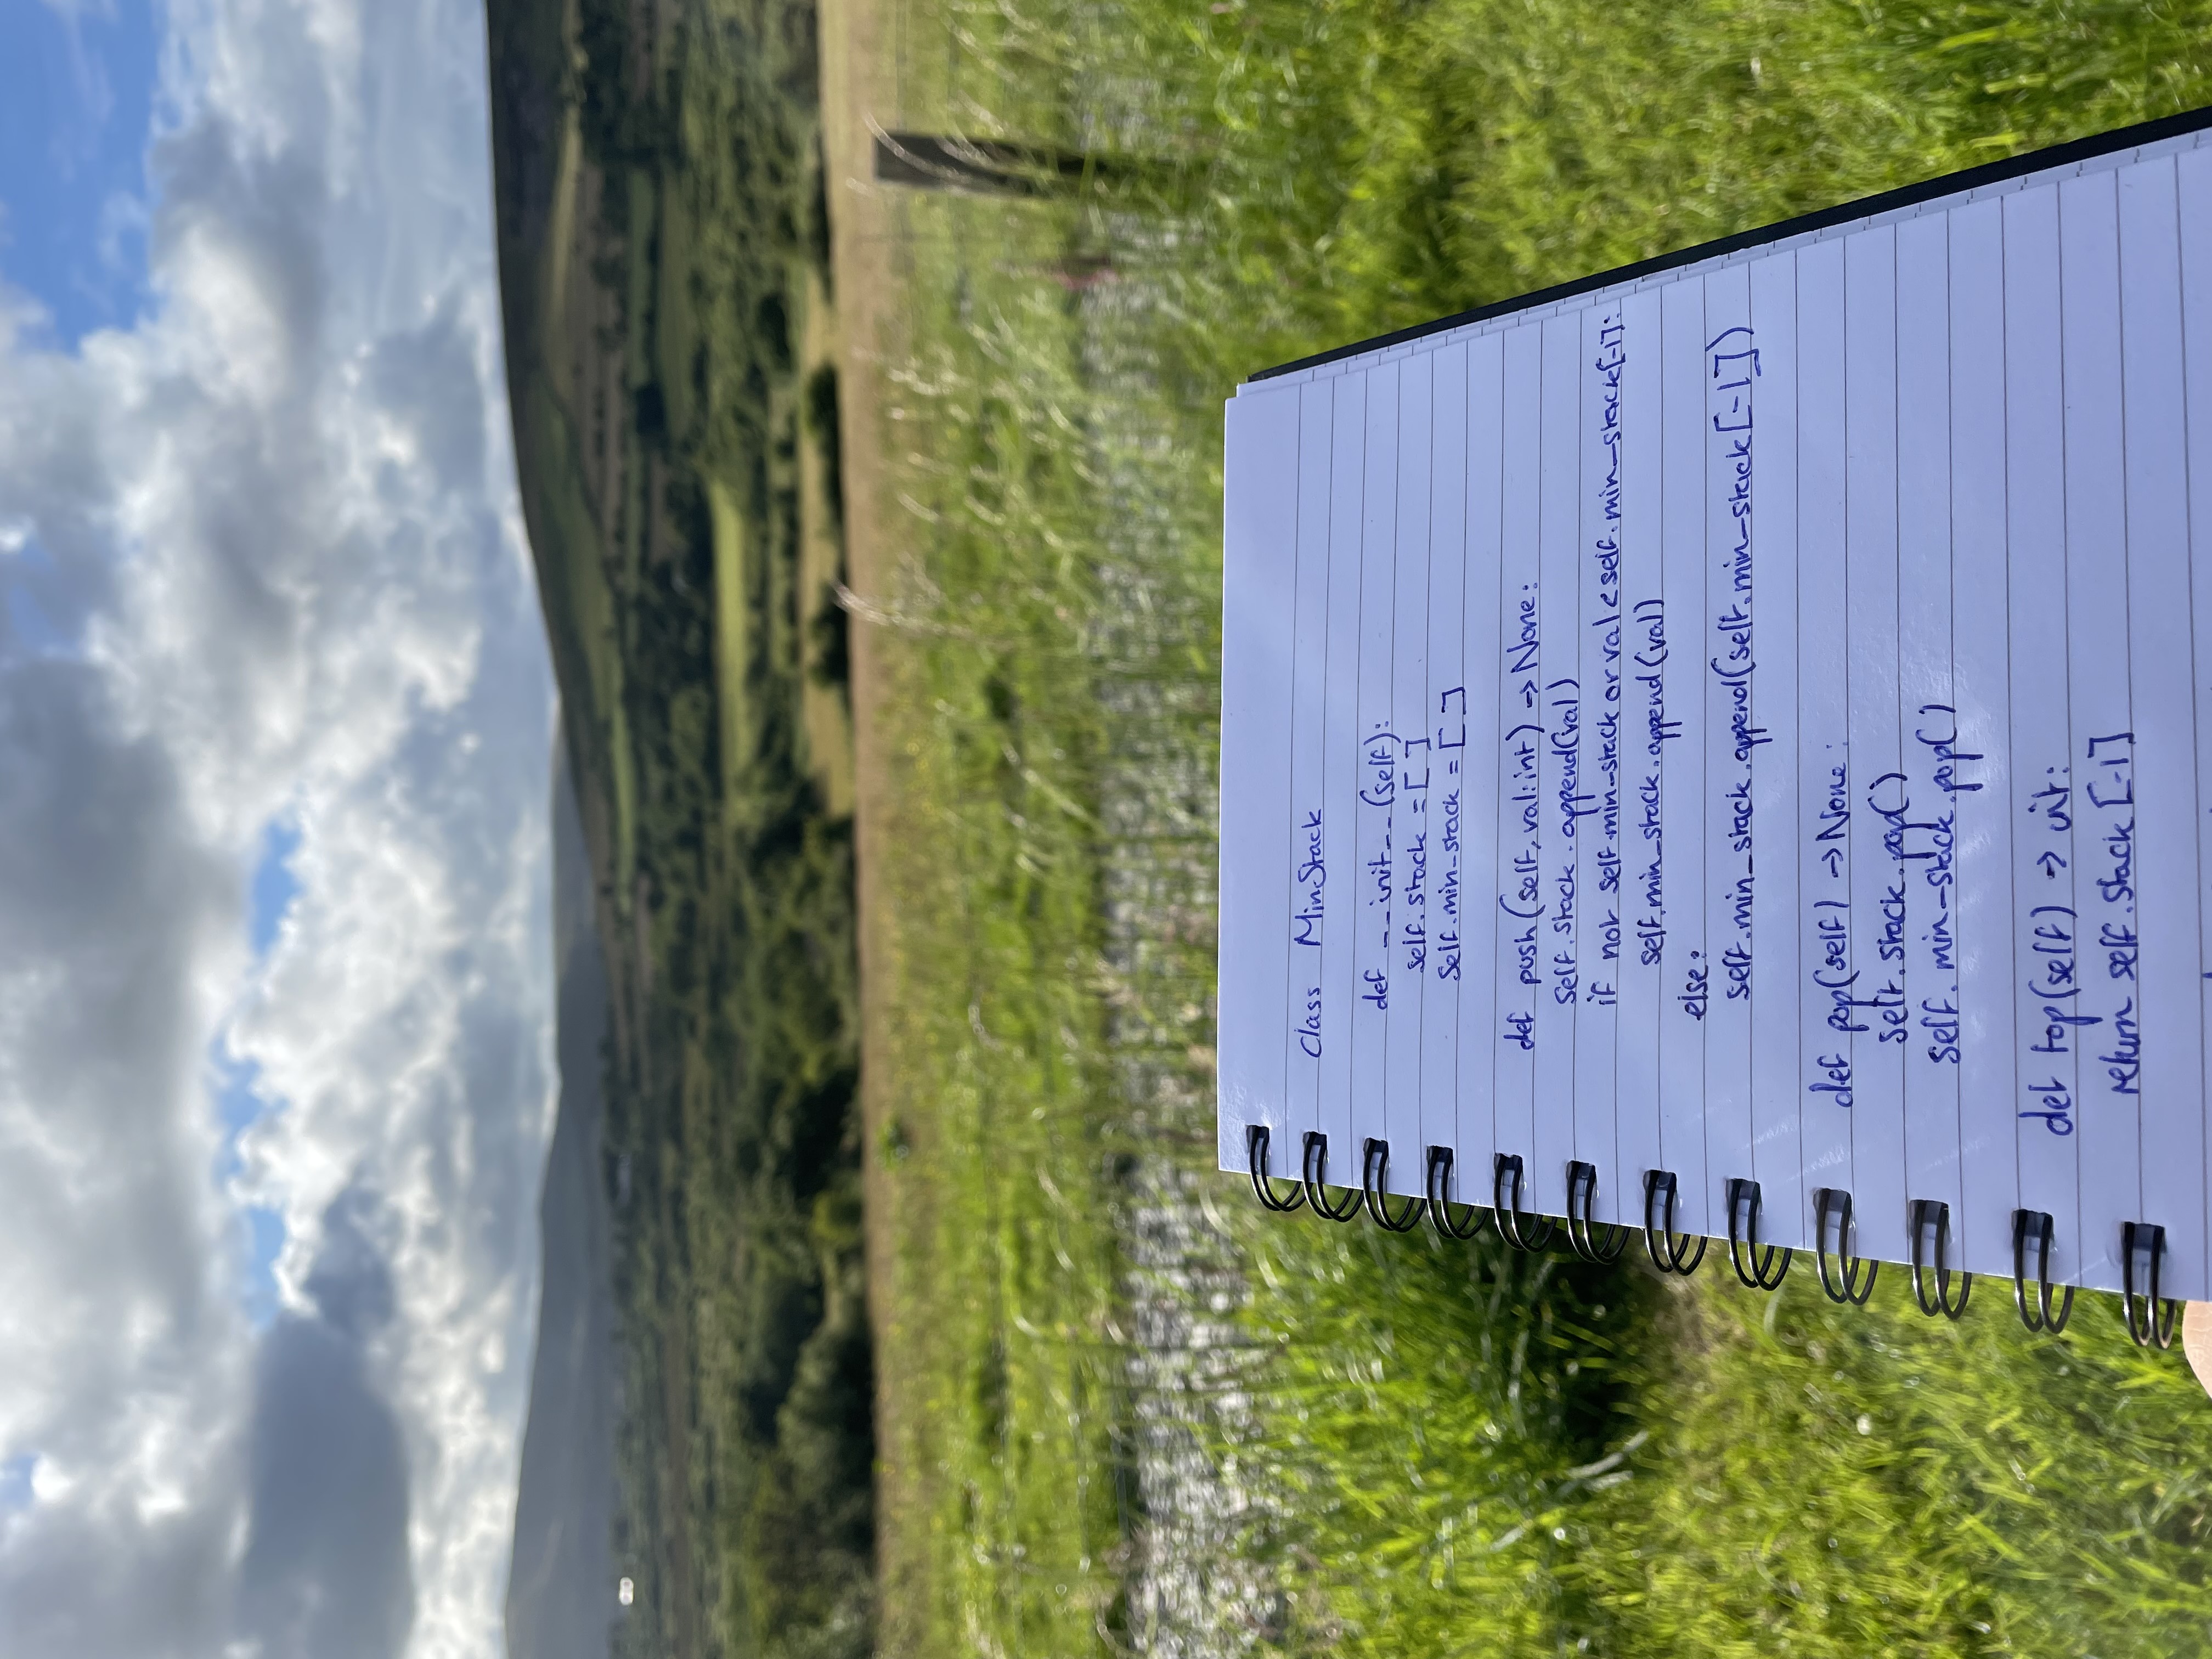 class MinStack
def __init__(self):
self.stack = []
self.min_stack = []
def push(self, val:int) -> None:
self.stack.append(val)
if not self.min_stack or val < self.min_stack[-1]:
self.min_stack.append(val)
else:
self.min_stack.append(self.min_stack[-1])
def pop(self) -> None:
self.stack.pop()
self.min_stack.pop()
def top(self) -> int:
return self.stack[-1]